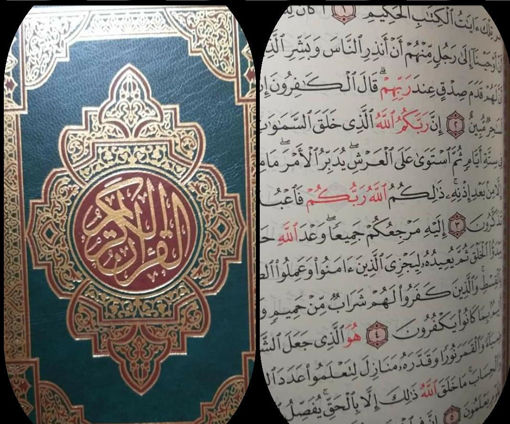 القرآن الكريم
تِلْكَ ءَايَٰتُ ٱلْكِتَٰبِ ٱلْحَكِيمِ ١ أَكَانَ
أَنْ أَوْحَيْنَآ إِلَىٰ رَجُلٍ مِّنْهُمْ أَنْ أَنذِرِ ٱلنَّاسَ وَبَشِّرِ
لَهُمْ قَدَمَ صِدْقٍ عِندَ رَبِّهِمْ ۗ قَالَ ٱلْكَٰفِرُونَ
مُّبِينٌ ٢ إِنَّ رَبَّكُمُ ٱللَّهُ ٱلَّذِى خَلَقَ ٱلسَّمَٰوَٰتِ
سِتَّةِ أَيَّامٍ ثُمَّ ٱسْتَوَىٰ عَلَى ٱلْعَرْشِ ۖ يُدَبِّرُ ٱلْأَمْرَ ۖ مَا
مِنۢ بَعْدِ إِذْنِهِۦ ۚ ذَٰلِكُمُ ٱللَّهُ رَبُّكُمْ
تَذَكَّرُونَ ٣ إِلَيْهِ مَرْجِعُكُمْ جَمِيعًا ۖ وَعْدَ ٱللَّهِ
ٱلْخَلْقَ ثُمَّ يُعِيدُهُۥ لِيَجْزِىَ ٱلَّذِينَ ءَامَنُوا۟ وَعَمِلُوا۟
وَٱلَّذِينَ كَفَرُوا۟ لَهُمْ شَرَابٌ مِّنْ حَمِيمٍ
بِمَا كَانُوا۟ يَكْفُرُونَ ٤ هُوَ ٱلَّذِى جَعَلَ
وَٱلْقَمَرَ نُورًا وَقَدَّرَهُۥ مَنَازِلَ لِتَعْلَمُوا۟ عَدَدَ
مَا خَلَقَ ٱللَّهُ ذَٰلِكَ إِلَّا بِٱلْحَقِّ ۚ يُفَصِّلُ
يَعْلَمُونَ ٥ إِنَّ